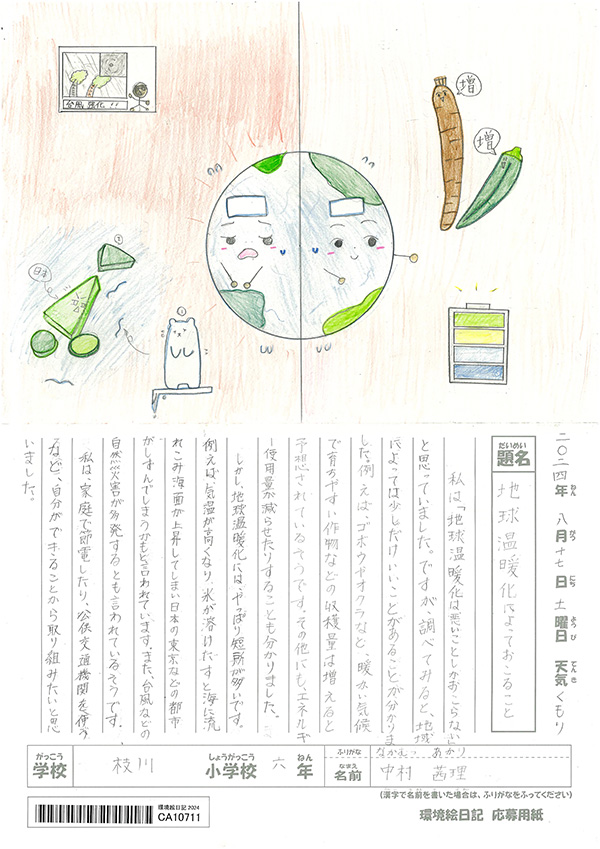 台風強化!!
増
増
日本
二〇二四年 八月十七日 土曜日 天気 くもり
ねん がつ にち ようび てんき
だいめい
題名
地球温暖化によっておこること
私は「地球温暖化は悪いことしかおこらない」
と思っていました。ですが、調べてみると、地域
によっては少しだけいいことがあることが分かりま
した。例えば、ゴボウやオクラなど、暖かい気候
で育ちやすい作物などの収穫量は増えると
予想されているそうです。その他にも、エネルギ
ー使用量が減らせたりすることも分かりました。
しかし、地球温暖化には、やっぱり短所が多いです。
例えば、気温が高くなり、氷が溶けだすと海に流
れこみ海面が上昇してしまい日本の東京などの都市
がしずんでしまうかもと言われています。また、台風などの
自然災害が多発するとも言われているそうです。
私は、家庭で節電したり、公共交通機関を使う
など、自分ができることから取り組みたいと思
いました。
がっこう
学校
枝川
しょうがっこう
小学校
六
ねん
年
ふりがな
なかむら あかり
なまえ
名前
中村 茜理
(漢字で名前を書いた場合は、ふりがなをふってください)
環境絵日記 2024
CA10711
環境絵日記 応募用紙